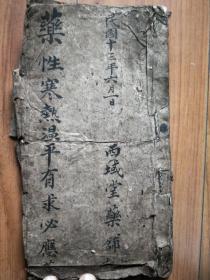 民國十二年六月一日
西域堂藥鋪
藥性寒熱温平有求必應